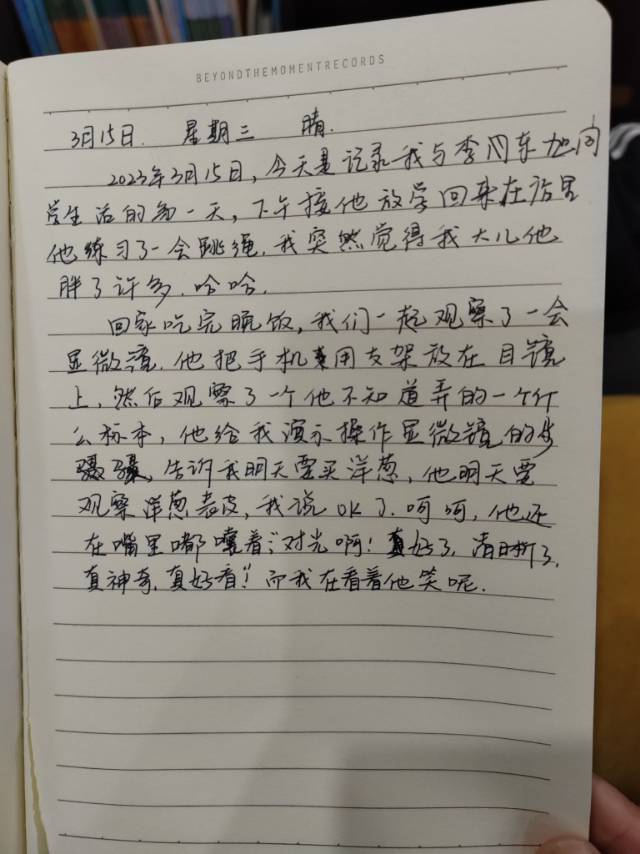 BEYONDTHEMOMENTRECORDS
3月15日. 星期三 晴.
2023年3月15日,今天是记录我与李同东旭同
学生活的第一天,下午接他放学回来在访里
他练习了一会跳绳.我突然觉得我大儿他
胖了许多.哈哈.
回家吃完晚饭,我们一起观察了一会
显微镜.他把手机用支架放在目镜
上,然后观察了一个他不知道弄的一个什
么标本,他给我演示操作显微镜的步
骤,告诉我明天要买洋葱,他明天要
观察洋葱表皮,我说OK了.呵呵,他还
在嘴里嘟囔着:"对光啊!真好了,清晰了,
真神奇.真好看!"而我在看着他笑呢.